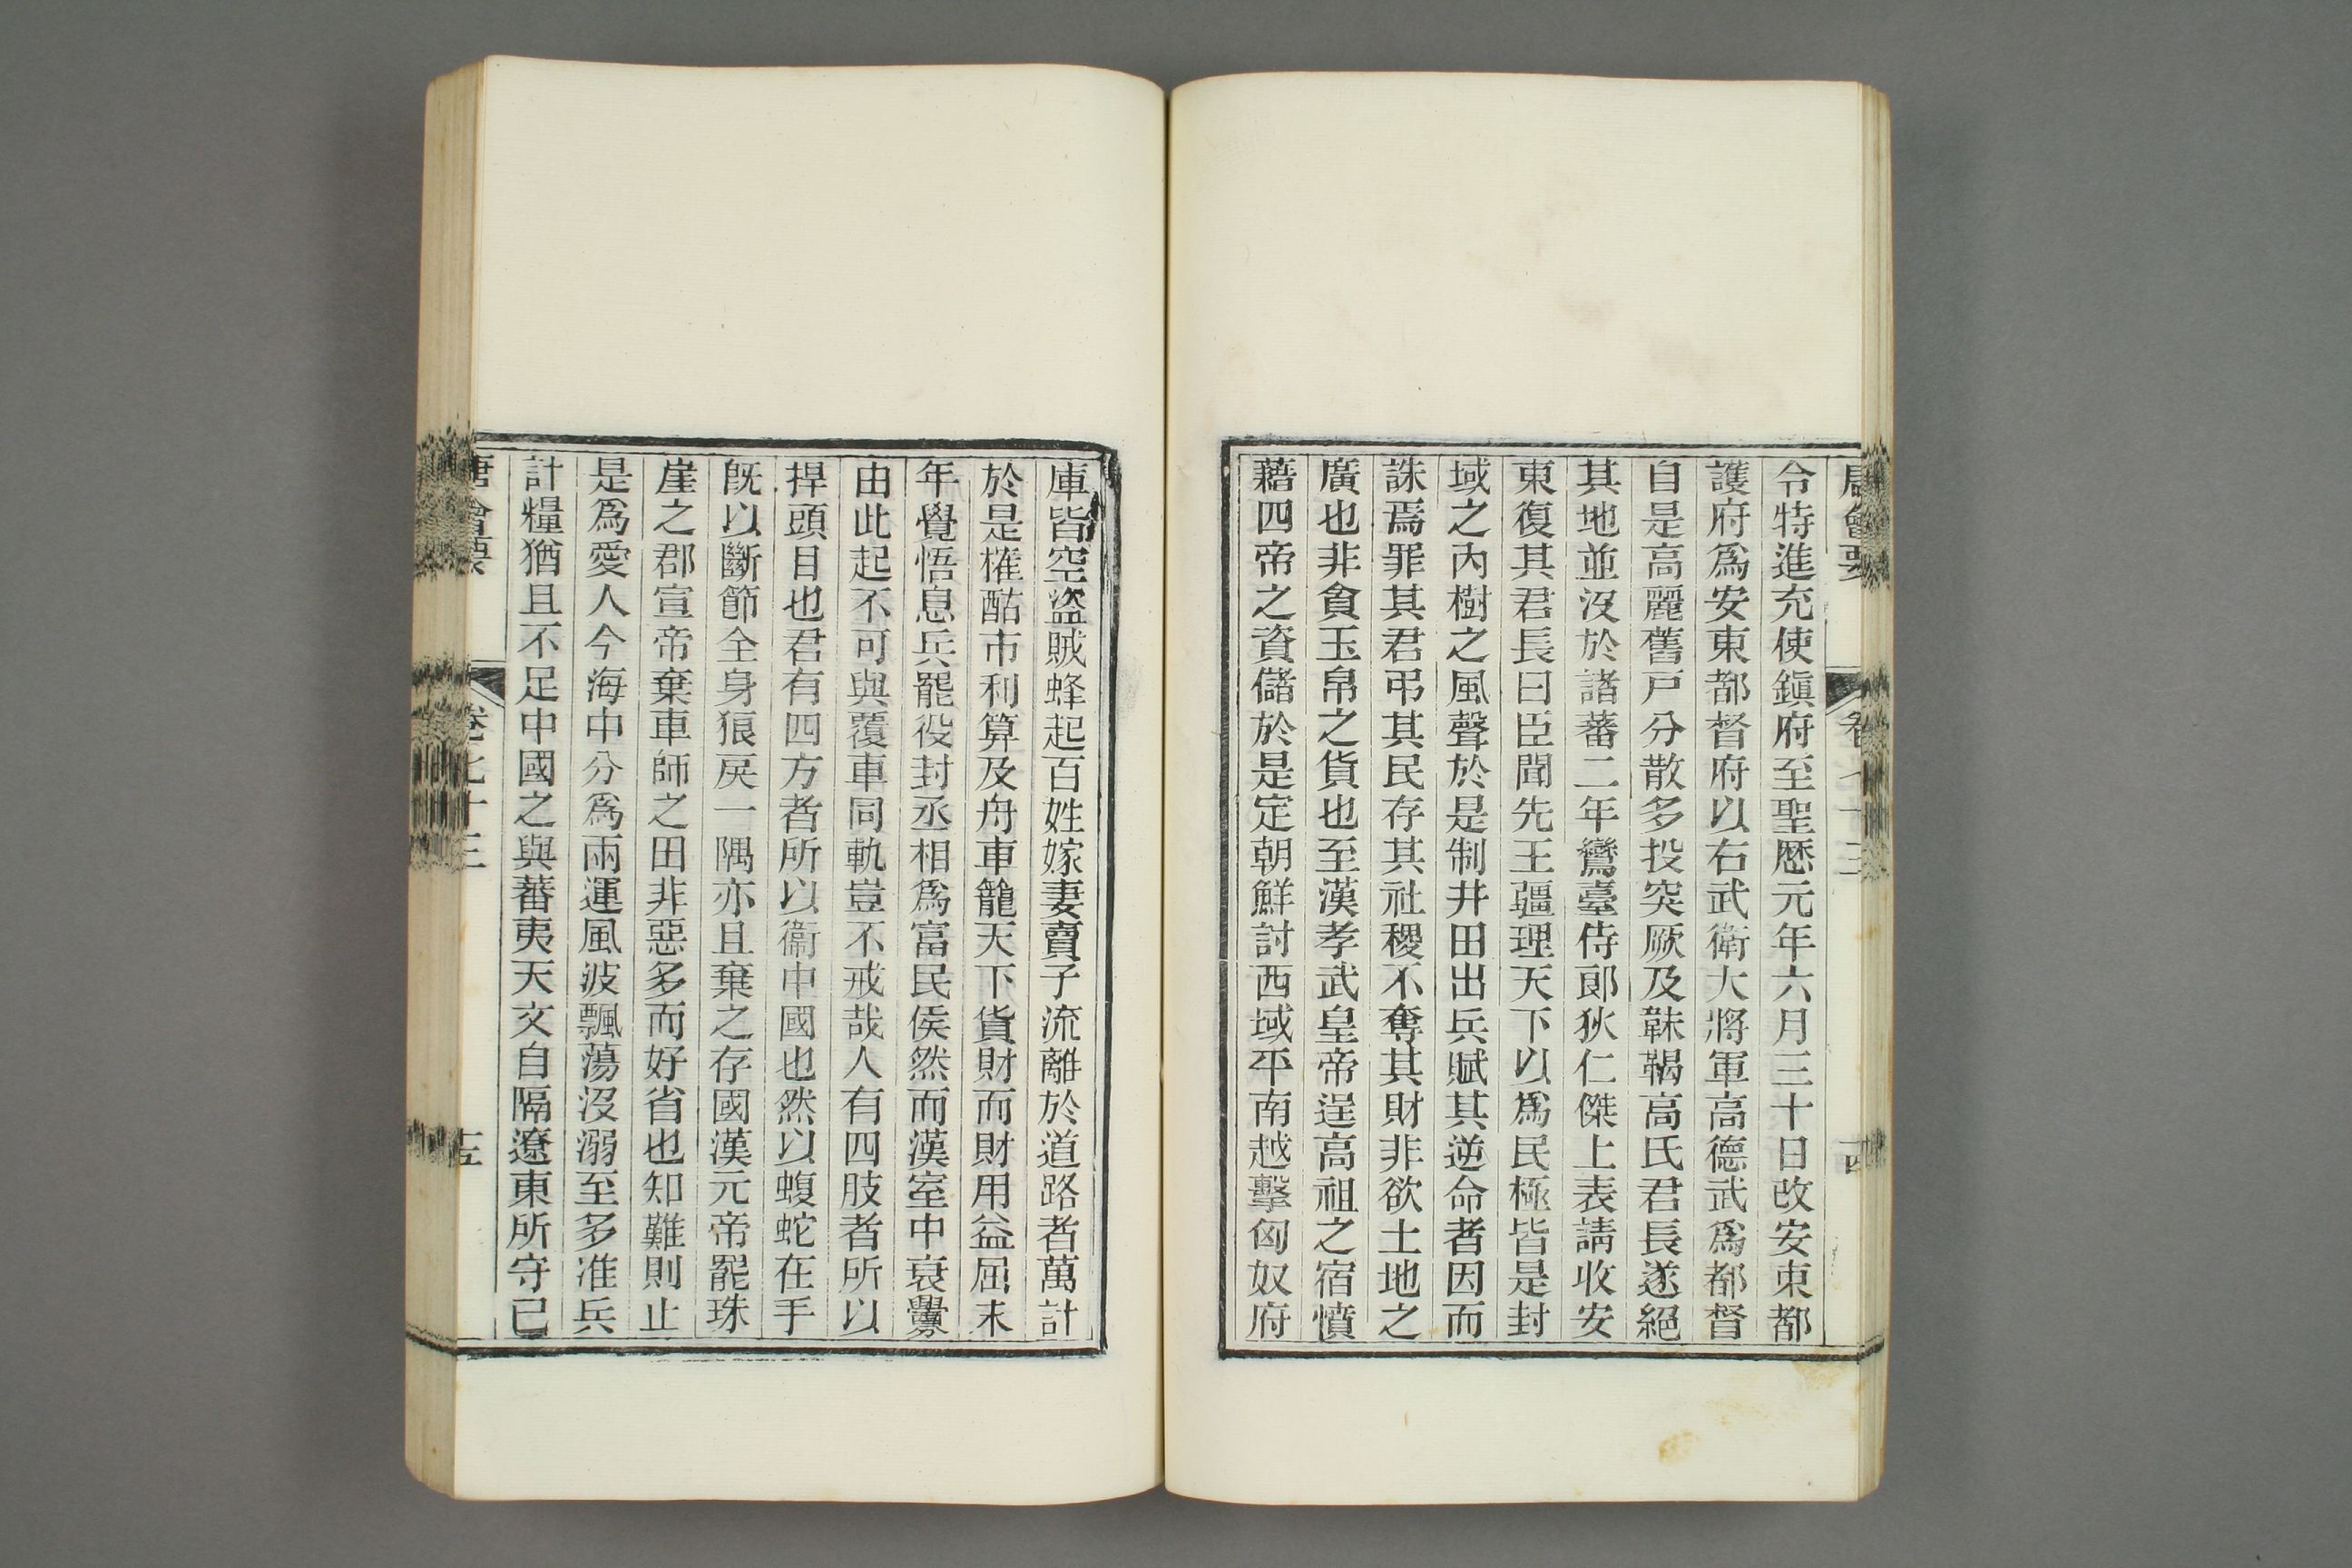 唐會要 卷七十三 十四
令特進充使鎭府至聖厯元年六月三十日改安東都
護府爲安東都督府以右武衛大將軍高德武爲都督
自是高麗舊戸分散多投突厥及靺鞨高氏君長遂絕
其地並沒於諸蕃二年鸞臺侍郞狄仁傑上表請收安
東復其君長曰臣聞先王疆理天下以爲民極皆是封
域之內樹之風聲於是制井田出兵賦其逆命者因而
誅焉罪其君弔其民存其社稷不奪其財非欲土地之
廣也非貪玉帛之貨也至漢孝武皇帝逞高祖之宿憤
藉四帝之資儲於是定朝鮮討西域平南越擊匈奴府
庫皆空盜賊蜂起百姓嫁妻賣子流離於道路者萬計
於是榷酤市利算及舟車籠天下貨財而財用益屈末
年覺悟息兵罷役封丞相爲富民侯然而漢室中衰釁
由此起不可與覆車同軌豈不戒哉人有四肢者所以
捍頭目也君有四方者所以衞中國也然以蝮蛇在手
旣以斷節全身狼戾一隅亦且棄之存國漢元帝罷珠
崖之郡宣帝棄車師之田非惡多而好省也知難則止
是爲愛人今海中分爲兩運風波飄蕩沒溺至多准兵
計糧猶且不足中國之與蕃夷天文自隔遼東所守已
唐會要 卷七十三 十五